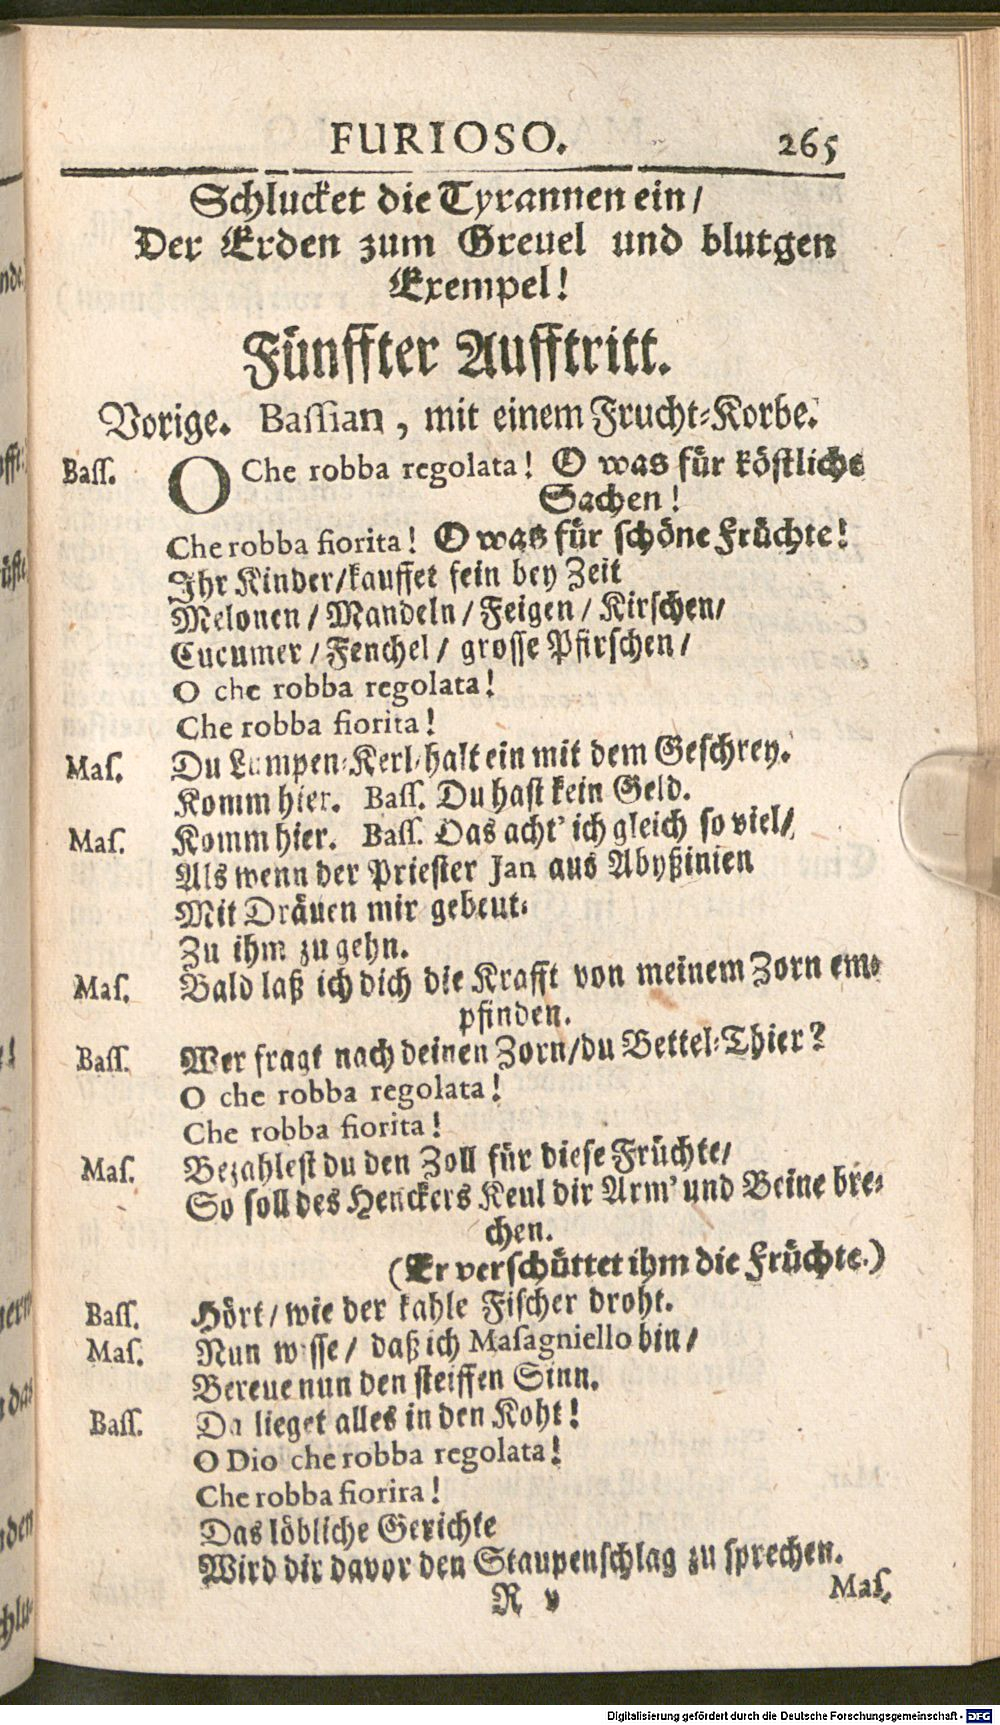 FURIOSO. 265
Schlucket die Tyrannen ein/
Der Erden zum Greuel und blutgen
Exempel!
Fünffter Aufftritt.
Vorige. Bassian, mit einem Frucht-Korbe.
Bass. O Che robba regolata! O was für köstliche
Sachen!
Che robba fiorita! O was für schöne Früchte!
Ihr Kinder/kauffet fein bey Zeit
Melonen/ Mandeln/ Feigen/ Kirschen/
Cucumer/ Fenchel/ grosse Pfirschen/
O che robba regolata!
Che robba fiorita!
Mas. Du Lumpen-Kerl/halt ein mit dem Geschrey.
Komm hier. Bass. Du hast kein Geld.
Mas. Komm hier. Bass. Das acht' ich gleich so viel/
Als wenn der Priester Jan aus Abyßinien
Mit Dräuen mir gebeut-
Zu ihm zu gehn.
Mas. Bald laß ich dich die Krafft von meinem Zorn em-
pfinden.
Bass. Wer fragt nach deinen Zorn/du Bettel-Thier?
O che robba regolata!
Che robba fiorita!
Mas. Bezahlest du den Zoll für diese Früchte/
So soll des Henckers Keul dir Arm' und Beine bre-
chen.
(Er verschüttet ihm die Früchte.)
Bass. Hört/ wie der kahle Fischer droht.
Mas. Nun wisse/ daß ich Masagniello bin/
Bereue nun den steiffen Sinn.
Bass. Da lieget alles in den Koht!
O Dio che robba regolata!
Che robba fiorira!
Das löbliche Gerichte
Wird dir davor den Staupenschlag zu sprechen.
R v Mas.
Digitalisierung gefördert durch die Deutsche Forschungsgemeinschaft - DFG